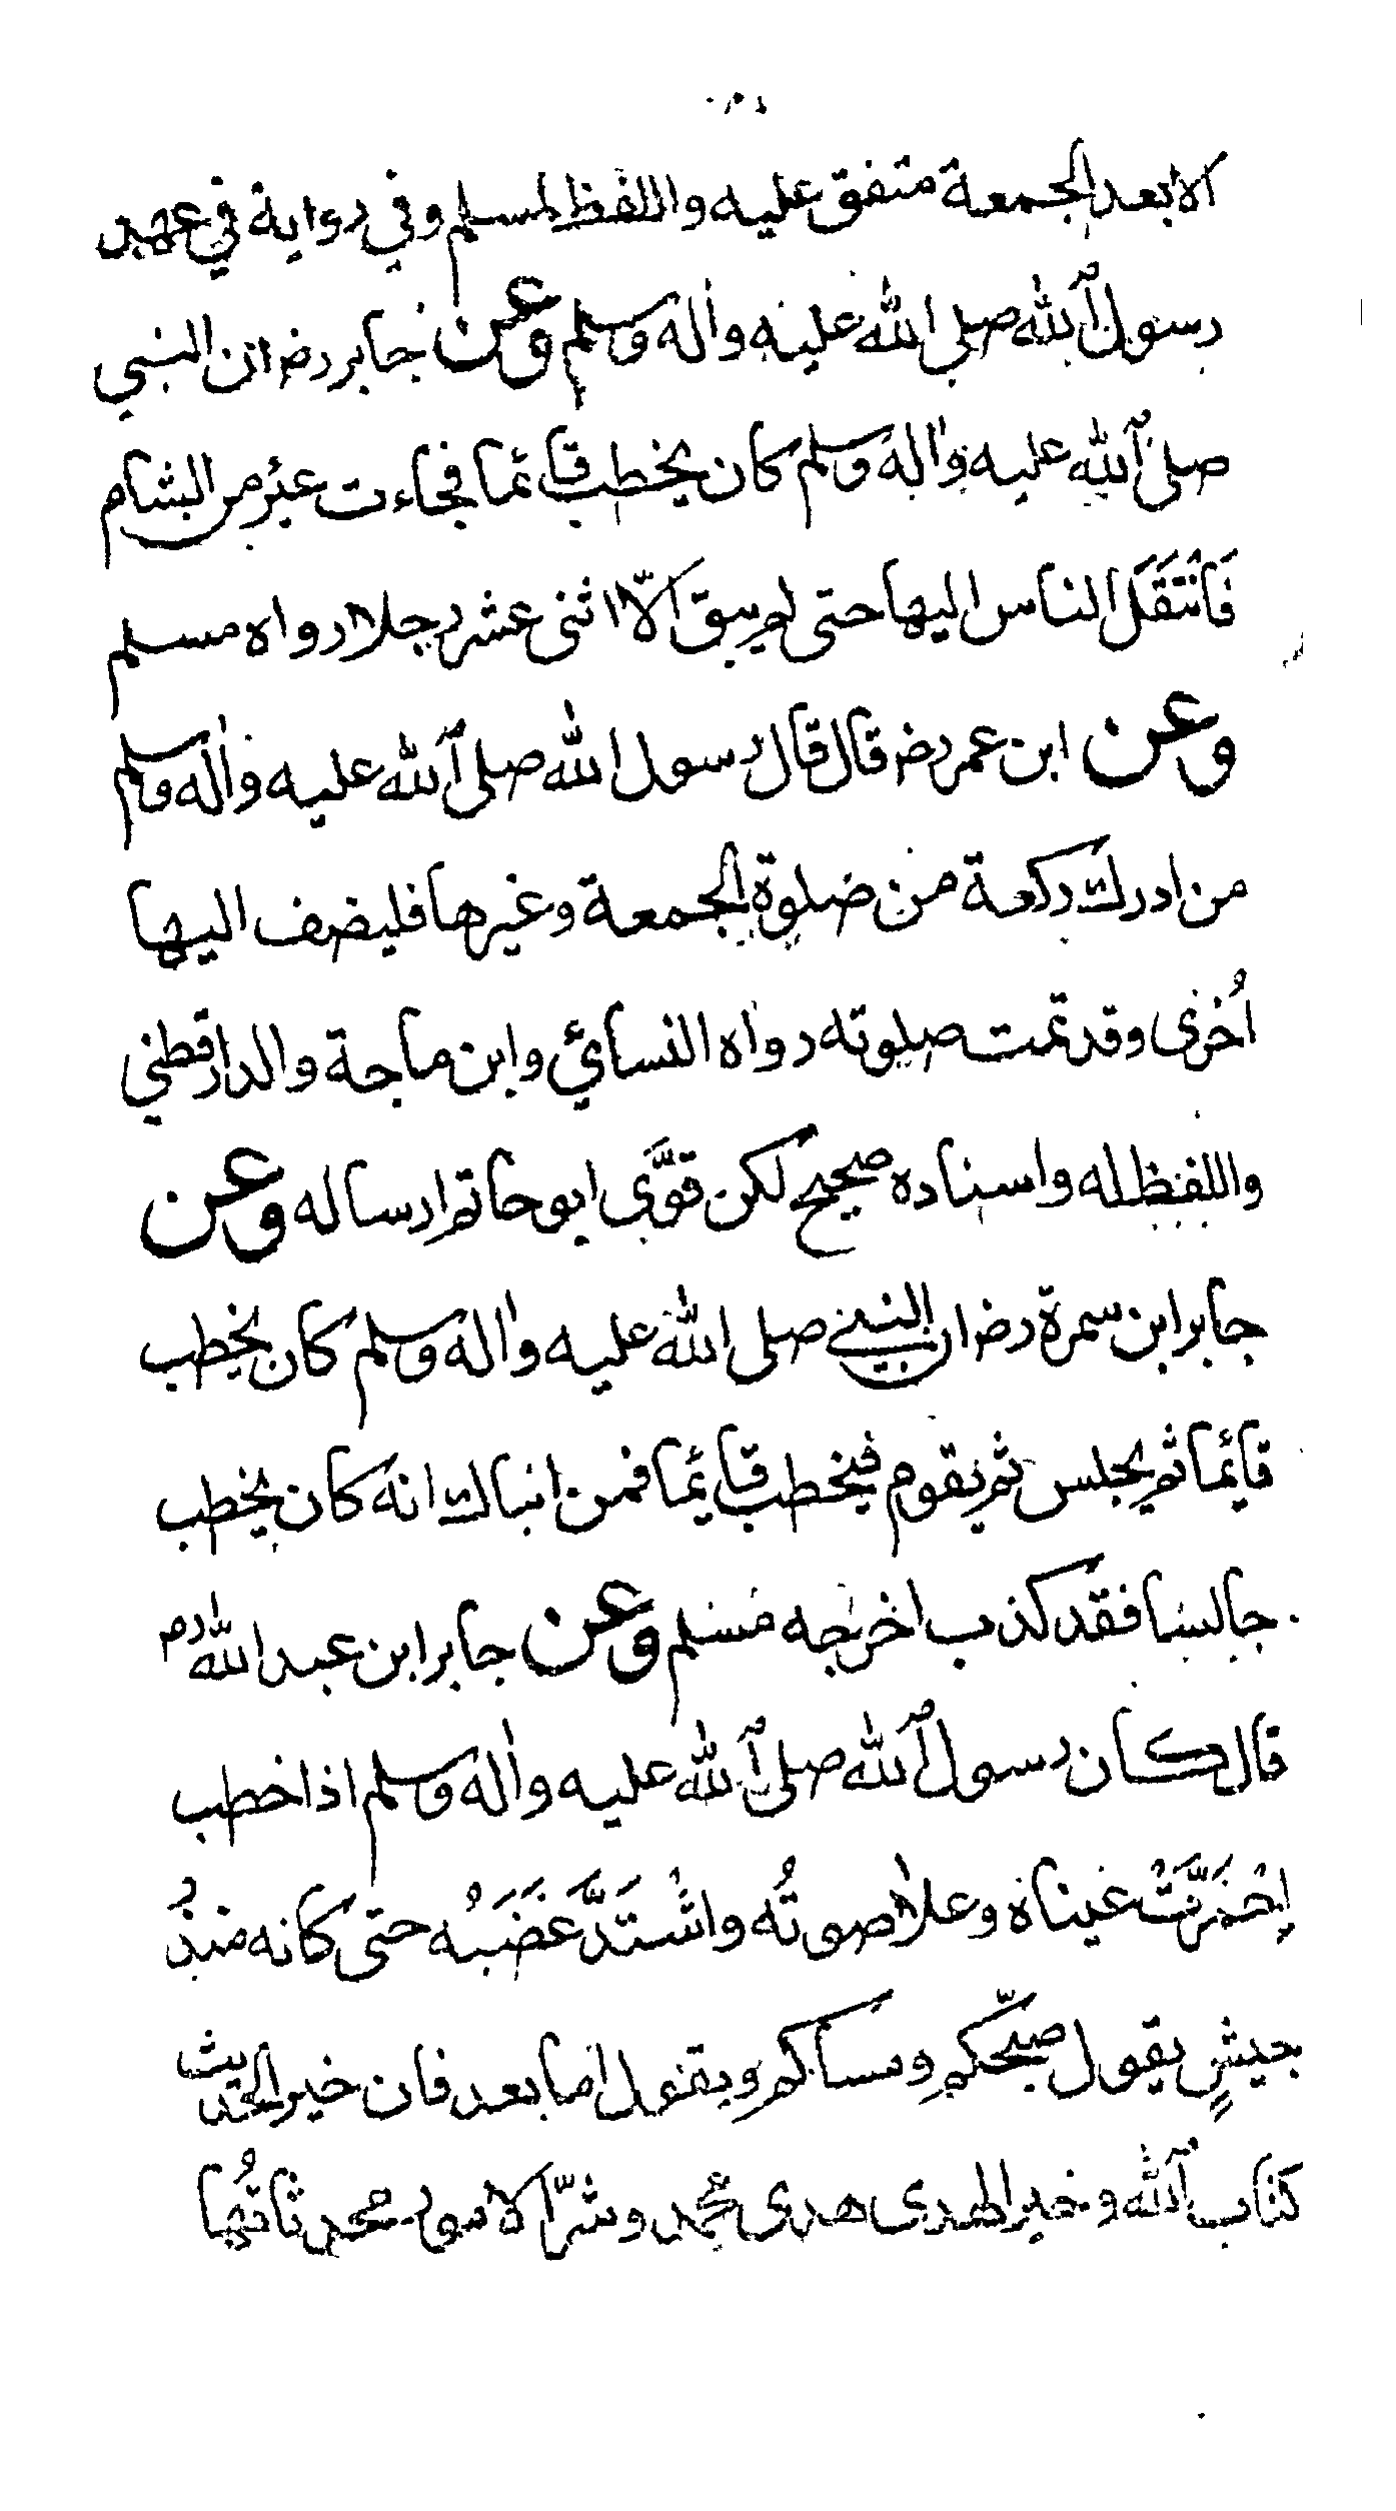 الا بعد الجمعة متفق عليه واللفظ لمسلم وفي رواية في عهد
رسول الله صلى الله عليه واله وسلم وعن جابر رض ان النبي
صلى الله عليه واله وسلم كان يخطب قائما فجاءت عير من الشام
فَانْتَقَلَ الناس اليها حتى لم يبق الّا اثنى عشر رجلا رواه مسلم
وعن ابن عمر رض قال قال رسول الله صلى الله عليه واله وسلم
من ادرك ركعة من صلوة الجمعة وغيرها فليضف اليها
اُخرى وقد تمت صلوته رواه النسائي وابن ماجة والدارقطني
واللفظ له واسناده صحيح لكن قوَّى ابو حاتم ارساله وعن
جابر ابن سمرة رض ان النبي صلى الله عليه واله وسلم كان يخطب
قائما ثم يجلس ثم يقوم فيخطب قائما فمن انباك انه كان يخطب
جالسا فقد كذب اخرجه مسلم وعن جابر ابن عبد الله رض
قال كان رسول الله صلى الله عليه واله وسلم اذا خطب
اِحْمَرَّتْ عيناه وعلا صوتُه واشْتَدَّ غَضَبُه حتى كانه منذرُ
جيشٍ يقول صبّحكم ومساكم ويقول اما بعد فان خير الحديث
كتاب الله وخير الهدى هدى محمد وشرّ الامور محدثاتُها